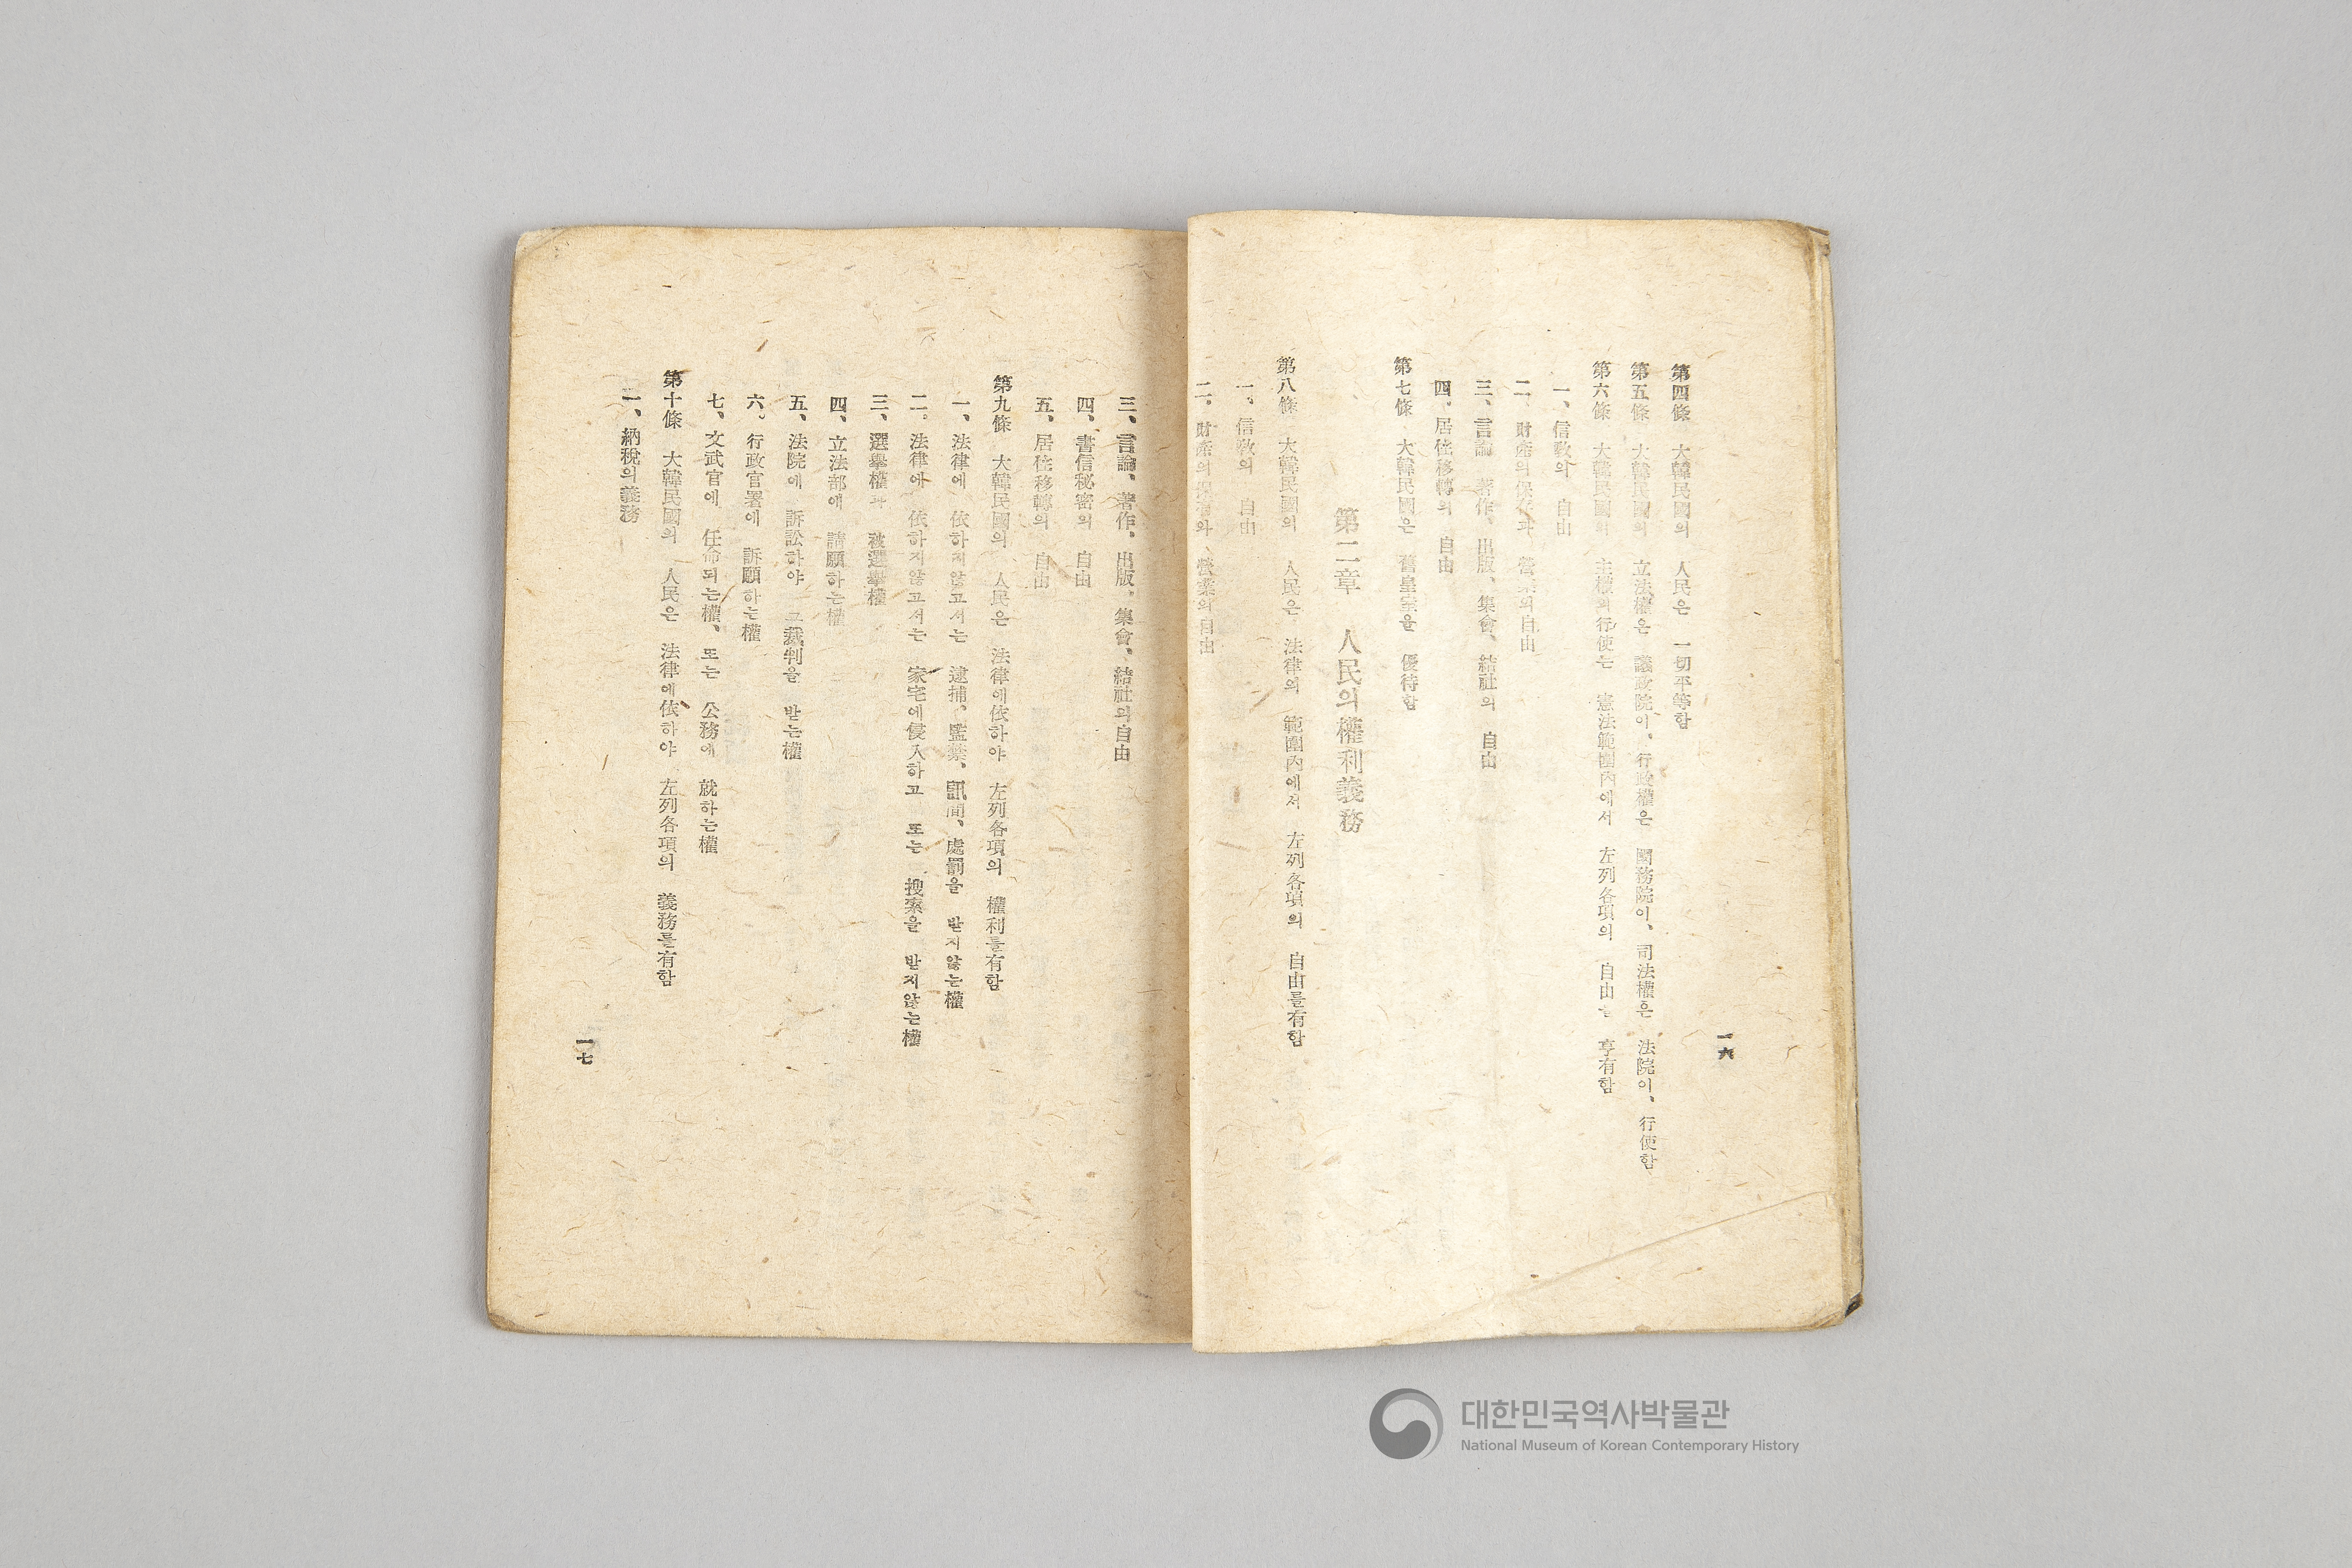 一六
第四條 大韓民國의 人民은 一切平等함
第五條 大韓民國의 立法權은 議政院이、行政權은 國務院이、司法權은 法院이、行使함
第六條 大韓民國의 主權의 行使는 憲法範圍內에서 左列各項의 自由를 享有함
一、信敎의 自由
二、財產의保存과 營業의自由
三、言論 著作、出版、集會、結社의 自由
四、居住移轉의 自由
第七條 大韓民國은 舊皇室을 優待함
第二章 人民의權利義務
第八條 大韓民國의 人民은 法律의 範圍內에서 左列各項의 自由를有함
一、信敎의 自由
二、財產의 營業의自由
三、言論、著作、出版、集會、結社의自由
四、書信秘密의 自由
五、居住移轉의 自由
第九條 大韓民國의 人民은 法律에依하야 左列各項의 權利를有함
一、法律에 依하지않고서는 逮捕、監禁、訊問、處罰을 받지않는權
二、法律에 依하지않고서는 家宅에侵入하고 또는 搜索을 받지않는權
三、選擧權과 被選擧權
四、立法部에 請願하는權
五、法院에 訴訟하야 그裁判을 받는權
六、行政官署에 訴願하는權
七、文武官에 任命되는權、또는 公務에 就하는權
第十條 大韓民國의 人民은 法律에依하야 左列各項의 義務를有함
一、納稅의義務
一七
대한민국역사박물관
National Museum of Korean Contemporary History